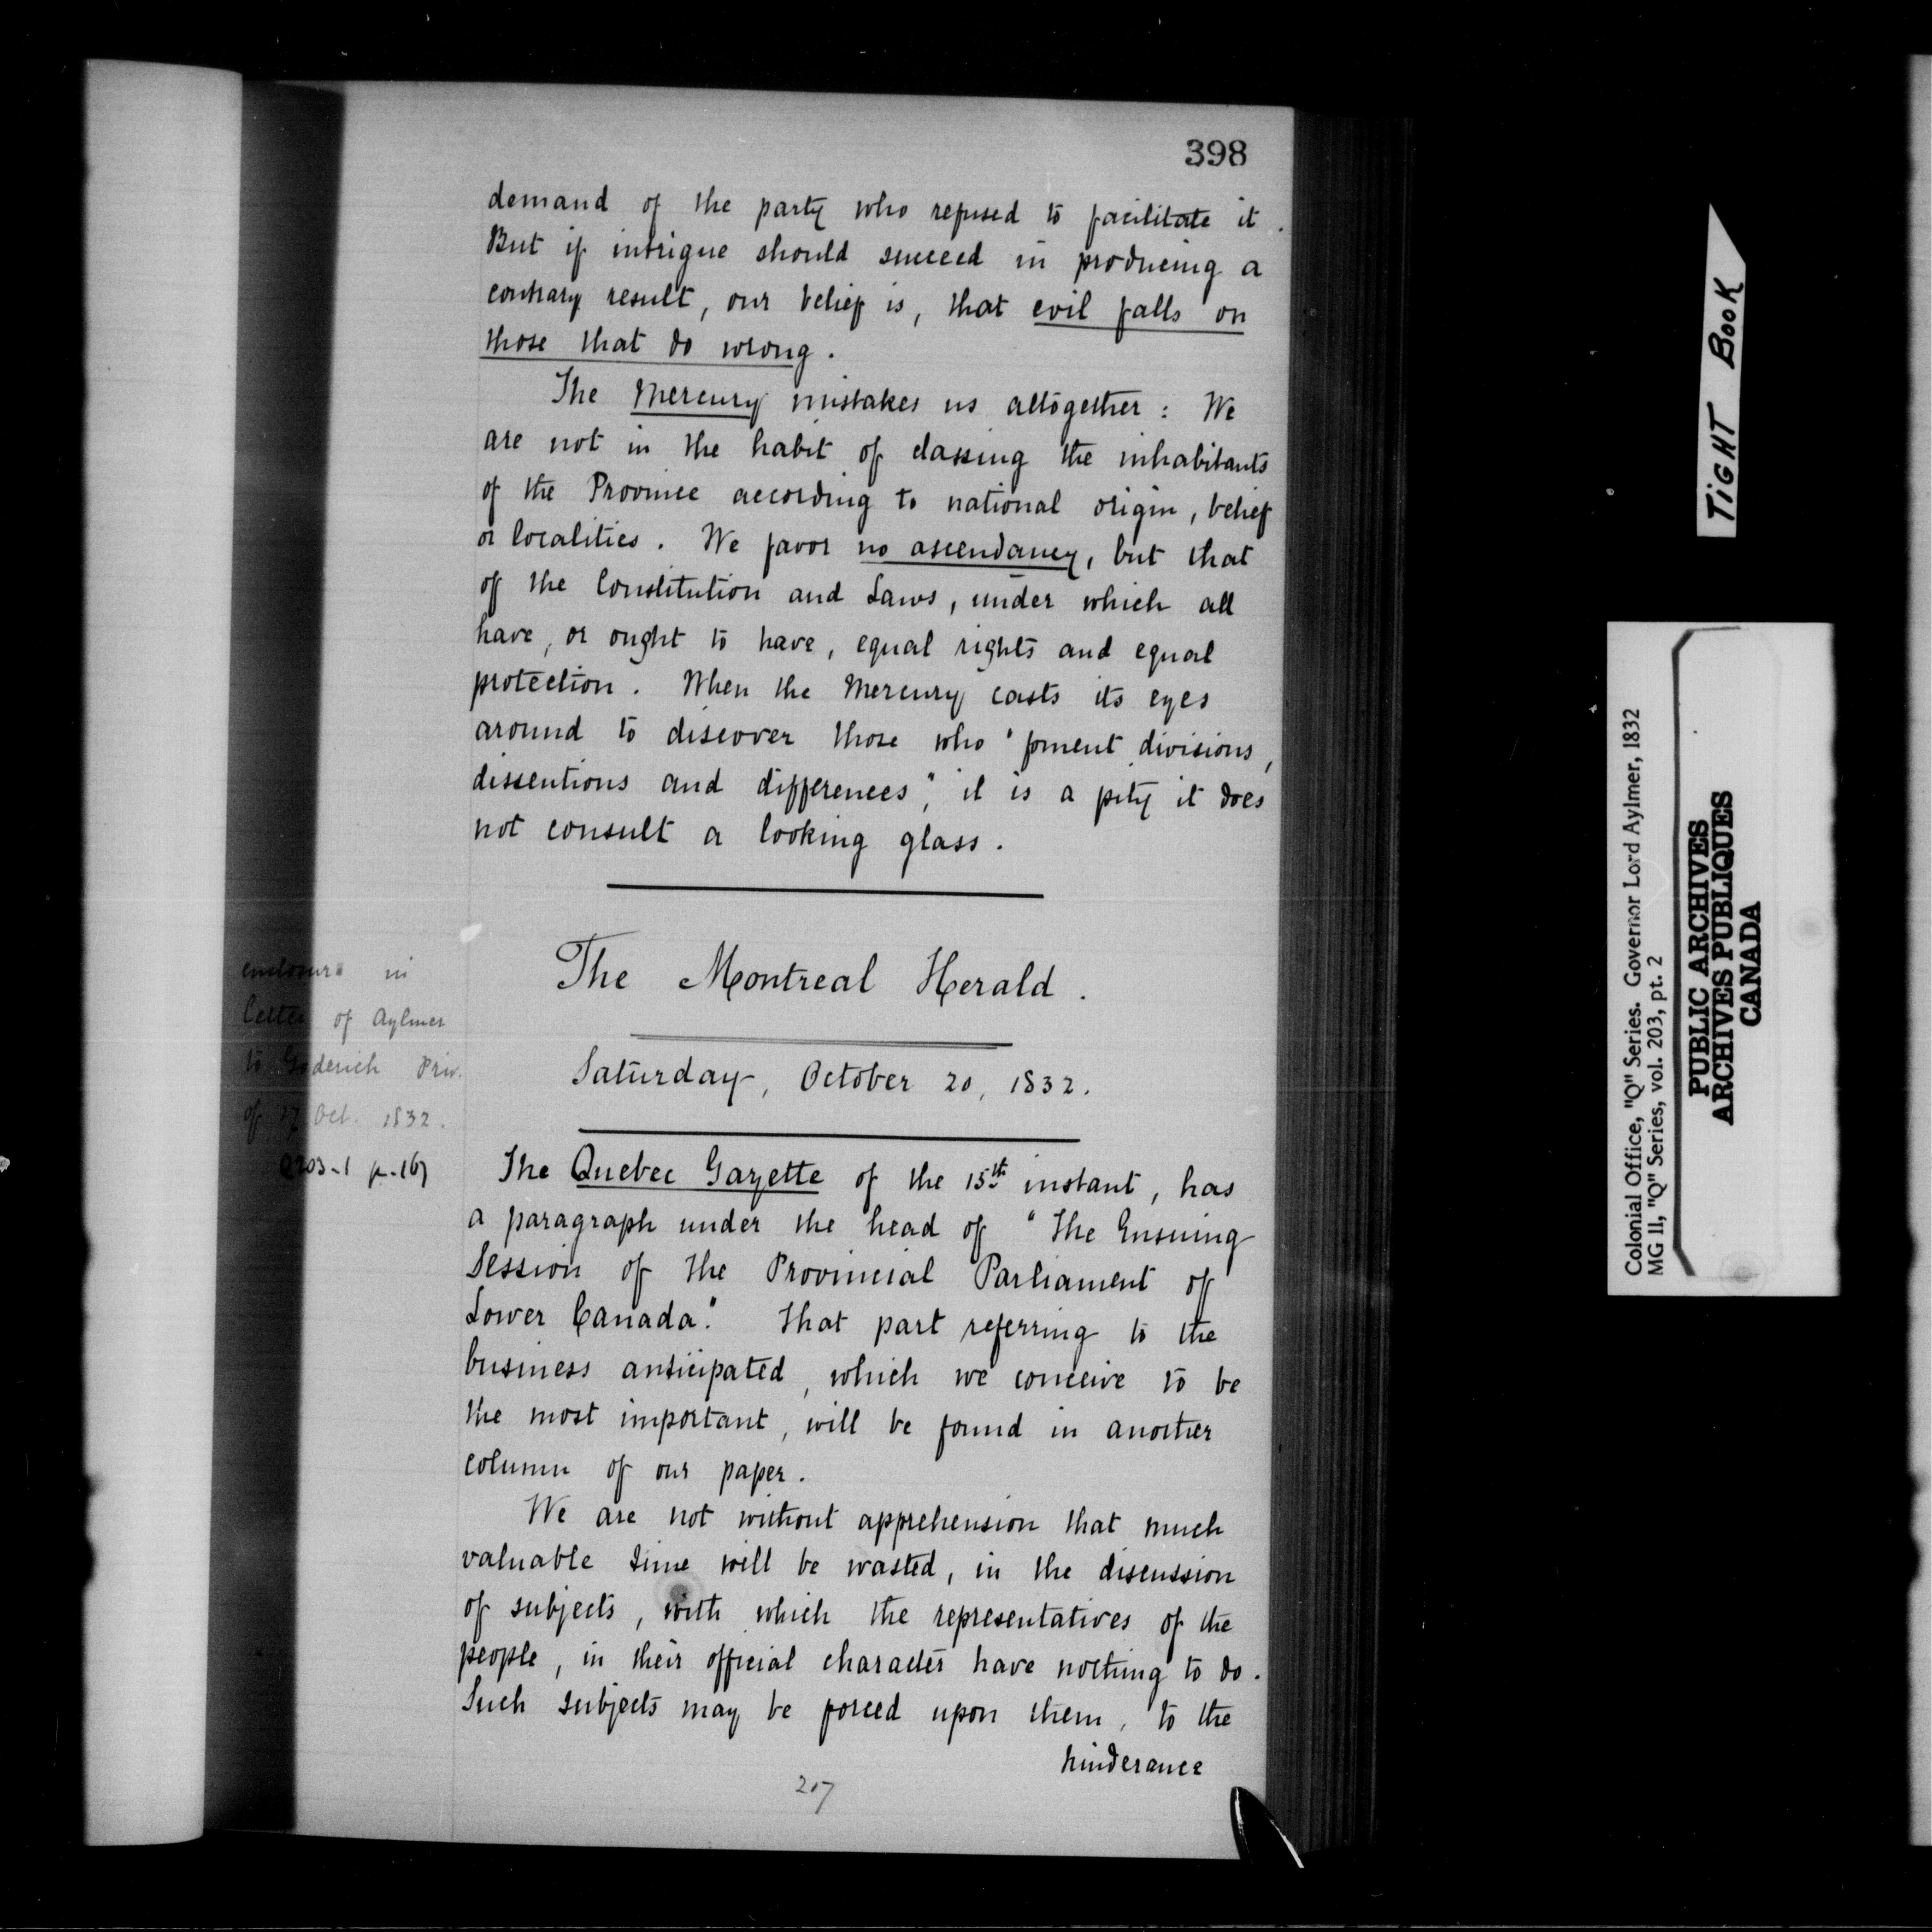 398
demand of the party who refused to facilitate it.
But if intrigue should succeed in producing a
contrary result, our belief is, that evil falls on
those that do wrong.
The Mercury mistakes us altogether: We
are not in the habit of classing the inhabitants
of the Province according to national origin, belief
or localities. We favor no ascendancy, but that
of the Constitution and Laws, under which all
have, or ought to have, equal rights and equal
protection. When the Mercury casts its eyes
around to discover those who "foment divisions,
dissentions and differences", it is a pity it does
not consult a looking glass.
The Montreal Herald.
Saturday, October 20, 1832.
enclosure in
letter of Aylmer
to Goderich Priv.
of 17 Oct. 1832.
Q203-1 p-167
The Quebec Gazette of the 15th instant, has
a paragraph under the head of "The Ensuing
Session of the Provincial Parliament of
Lower Canada." That part referring to the
business anticipated, which we conceive to be
the most important, will be found in another
column of our paper.
We are not without apprehension that much
valuable time will be wasted, in the discussion
of subjects, with which the representatives of the
people, in their official character have nothing to do.
Such subjects may be forced upon them, to the
hinderance
207
TIGHT BOOK
Colonial Office, "Q" Series. Governor Lord Aylmer, 1832
MG 11, "Q" Series, vol. 203, pt. 2
PUBLIC ARCHIVES
ARCHIVES PUBLIQUES
CANADA